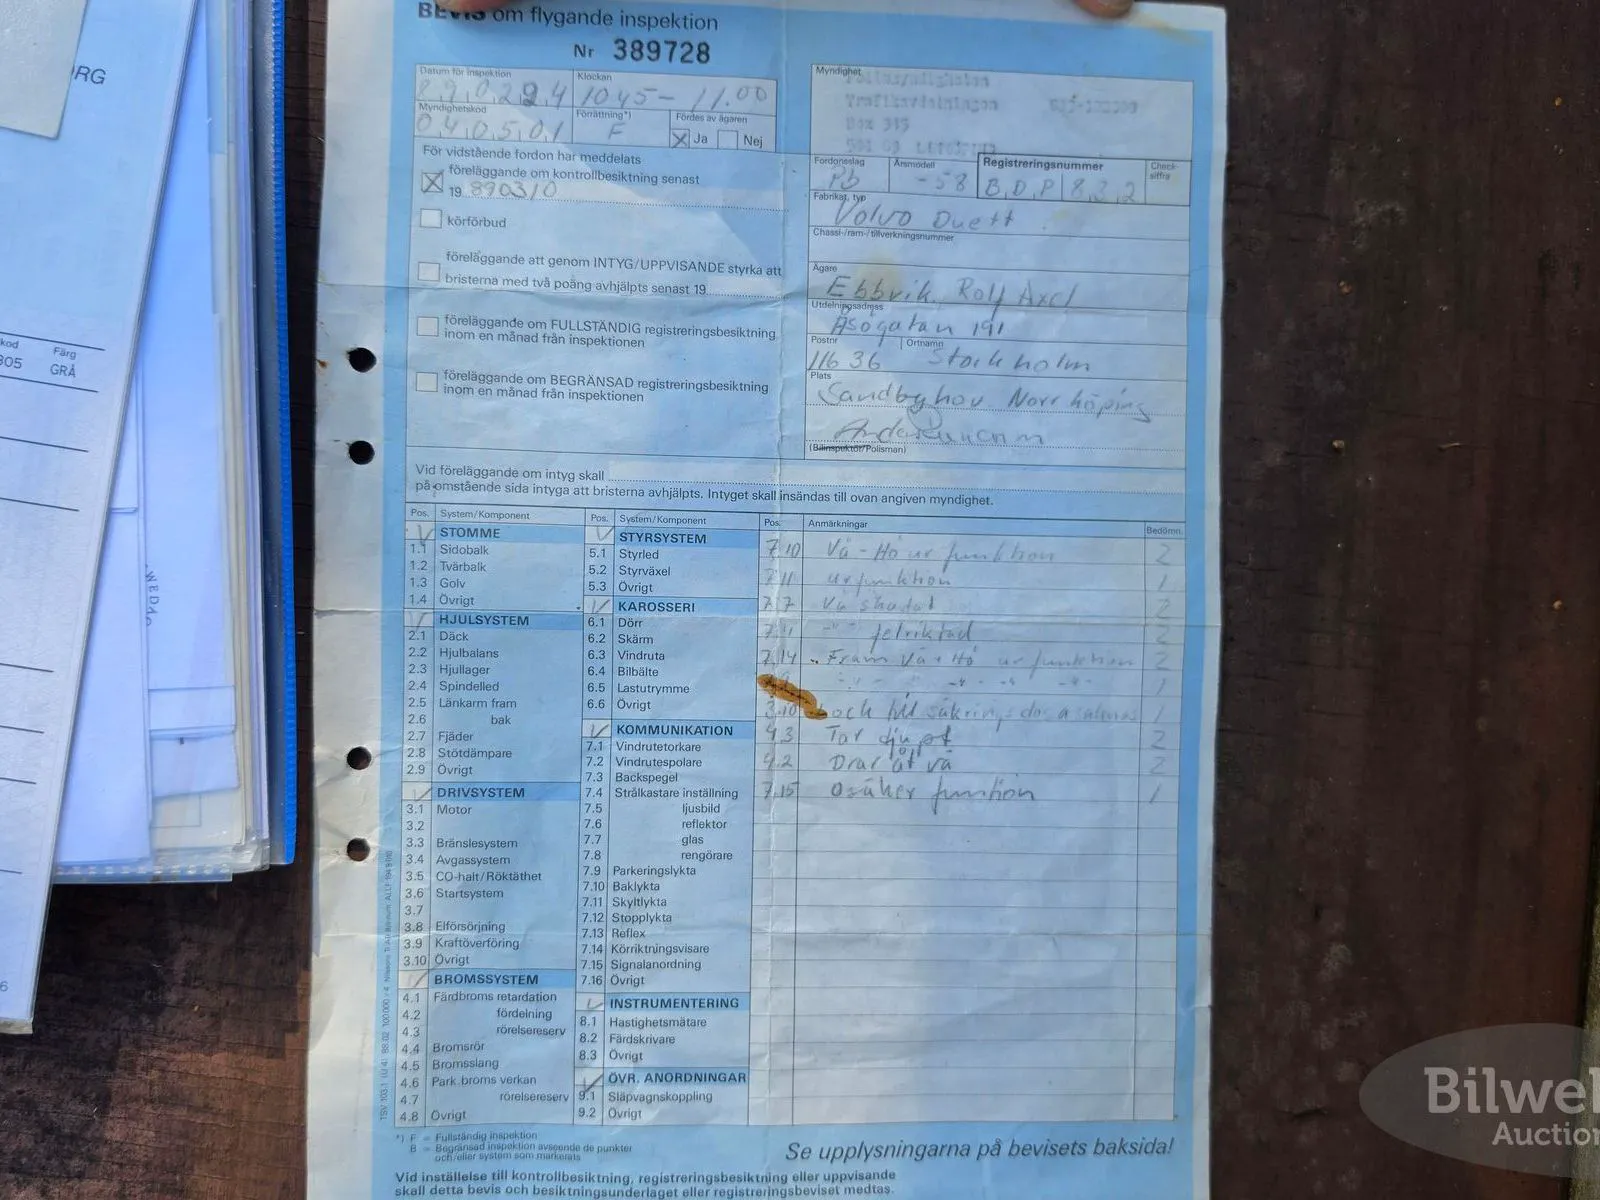 BEVIS om flygande inspektion
Nr 389728
Datum för inspektion
890224
Klockan
1045 - 11.00
Myndighetskod
040501
Förrättning*)
F
Fördes av ägaren
Ja Nej
För vidstående fordon har meddelats
föreläggande om kontrollbesiktning senast
19 890310
körförbud
föreläggande att genom INTYG/UPPVISANDE styrka att
bristerna med två poäng avhjälpts senast 19
föreläggande om FULLSTÄNDIG registreringsbesiktning
inom en månad från inspektionen
föreläggande om BEGRÄNSAD registreringsbesiktning
inom en månad från inspektionen
Myndighet
Trafikavdelningen
Box 315
Fordonsslag
Pb
Årsmodell
-58
Registreringsnummer
BDP 822
Check-
siffra
Fabrikat, typ
Volvo Duett
Chassi-/ram-/tillverkningsnummer
Ägare
Ebbvik Rolf Axel
Utdelningsadress
Åsögatan 191
Postnr
11636
Ortnamn
Stockholm
Plats
Sandbyhov Norrköping
(Bilinspektör/Polisman)
Vid föreläggande om intyg skall
på omstående sida intyga att bristerna avhjälpts. Intyget skall insändas till ovan angiven myndighet.
Pos. System/Komponent
STOMME
1.1 Sidobalk
1.2 Tvärbalk
1.3 Golv
1.4 Övrigt
HJULSYSTEM
2.1 Däck
2.2 Hjulbalans
2.3 Hjullager
2.4 Spindelled
2.5 Länkarm fram
2.6 bak
2.7 Fjäder
2.8 Stötdämpare
2.9 Övrigt
DRIVSYSTEM
3.1 Motor
3.2
3.3 Bränslesystem
3.4 Avgassystem
3.5 CO-halt/Röktäthet
3.6 Startsystem
3.7
3.8 Elförsörjning
3.9 Kraftöverföring
3.10 Övrigt
BROMSSYSTEM
4.1 Färdbroms retardation
4.2 fördelning
4.3 rörelsereserv
4.4 Bromsrör
4.5 Bromsslang
4.6 Park.broms verkan
4.7 rörelsereserv
4.8 Övrigt
Pos. System/Komponent
STYRSYSTEM
5.1 Styrled
5.2 Styrväxel
5.3 Övrigt
KAROSSERI
6.1 Dörr
6.2 Skärm
6.3 Vindruta
6.4 Bilbälte
6.5 Lastutrymme
6.6 Övrigt
KOMMUNIKATION
7.1 Vindrutetorkare
7.2 Vindrutespolare
7.3 Backspegel
7.4 Strålkastare inställning
7.5 ljusbild
7.6 reflektor
7.7 glas
7.8 rengörare
7.9 Parkeringslykta
7.10 Baklykta
7.11 Skyltlykta
7.12 Stopplykta
7.13 Reflex
7.14 Körriktningsvisare
7.15 Signalanordning
7.16 Övrigt
INSTRUMENTERING
8.1 Hastighetsmätare
8.2 Färdskrivare
8.3 Övrigt
ÖVR. ANORDNINGAR
9.1 Släpvagnskoppling
9.2 Övrigt
Pos. Anmärkningar Bedömn.
7.10 Vä - Hö ur funktion 2
7.11 ur funktion 1
7.7 Vä skadat 2
felriktad 2
7.14 Fram Vä + Hö ur funktion 2
1
3.10 lock till säkringsdosa saknas 1
4.3 Tar djupt 2
4.2 Drar åt vä 2
7.15 Osäker funktion 1
*) F = Fullständig inspektion
B = Begränsad inspektion avseende de punkter
och/eller system som markerats
Se upplysningarna på bevisets baksida!
Vid inställelse till kontrollbesiktning, registreringsbesiktning eller uppvisande
skall detta bevis och besiktningsunderlaget eller registreringsbeviset medtas.
RG
kod
305
Färg
GRÅ
6
Bilwe
Auction